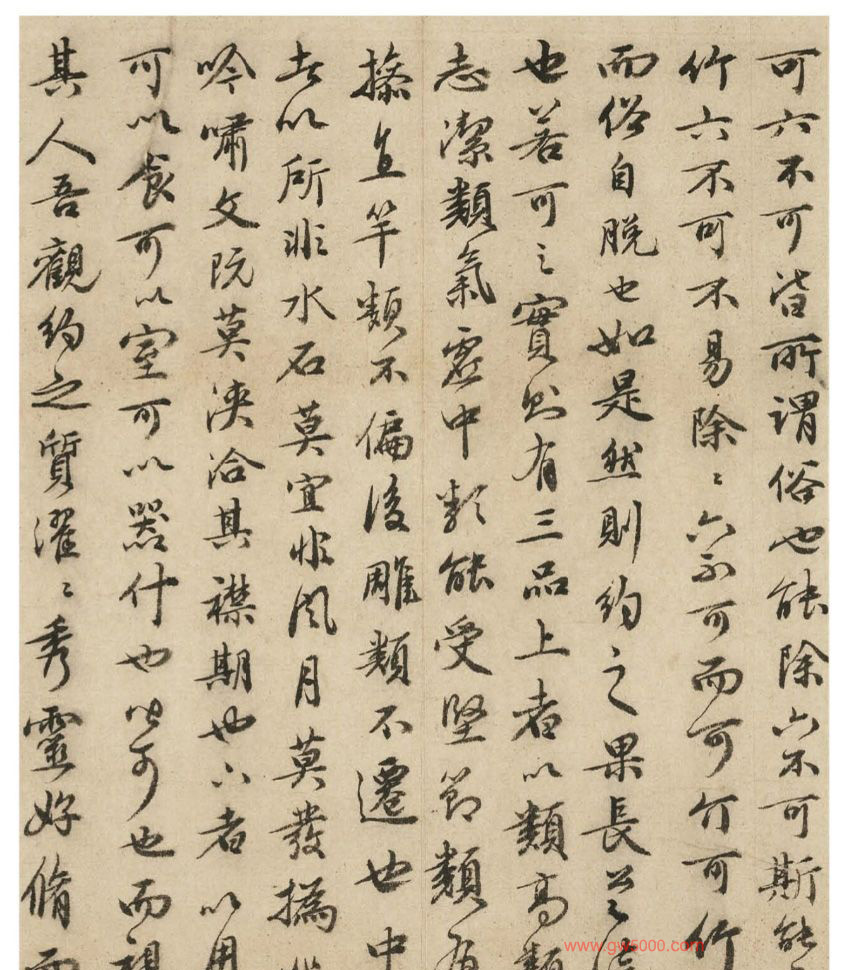 可六不可皆所謂俗也能除六不可斯能
竹六不可不易除〻六不可而可竹可竹
而俗自脫也如是然則約之果長
也若可之實則有三品上者以類高類
志潔類氣虛中類能受堅節類
操直竿類不偏後雕類不遷也中
者以所非水石莫宜非風月莫發撝
吟嘯文阮莫浹洽其襟期也下者以用
可以食可以室可以器什也皆可也而視
其人吾觀約之質濯〻秀靈好脩而
www.gw5000.com